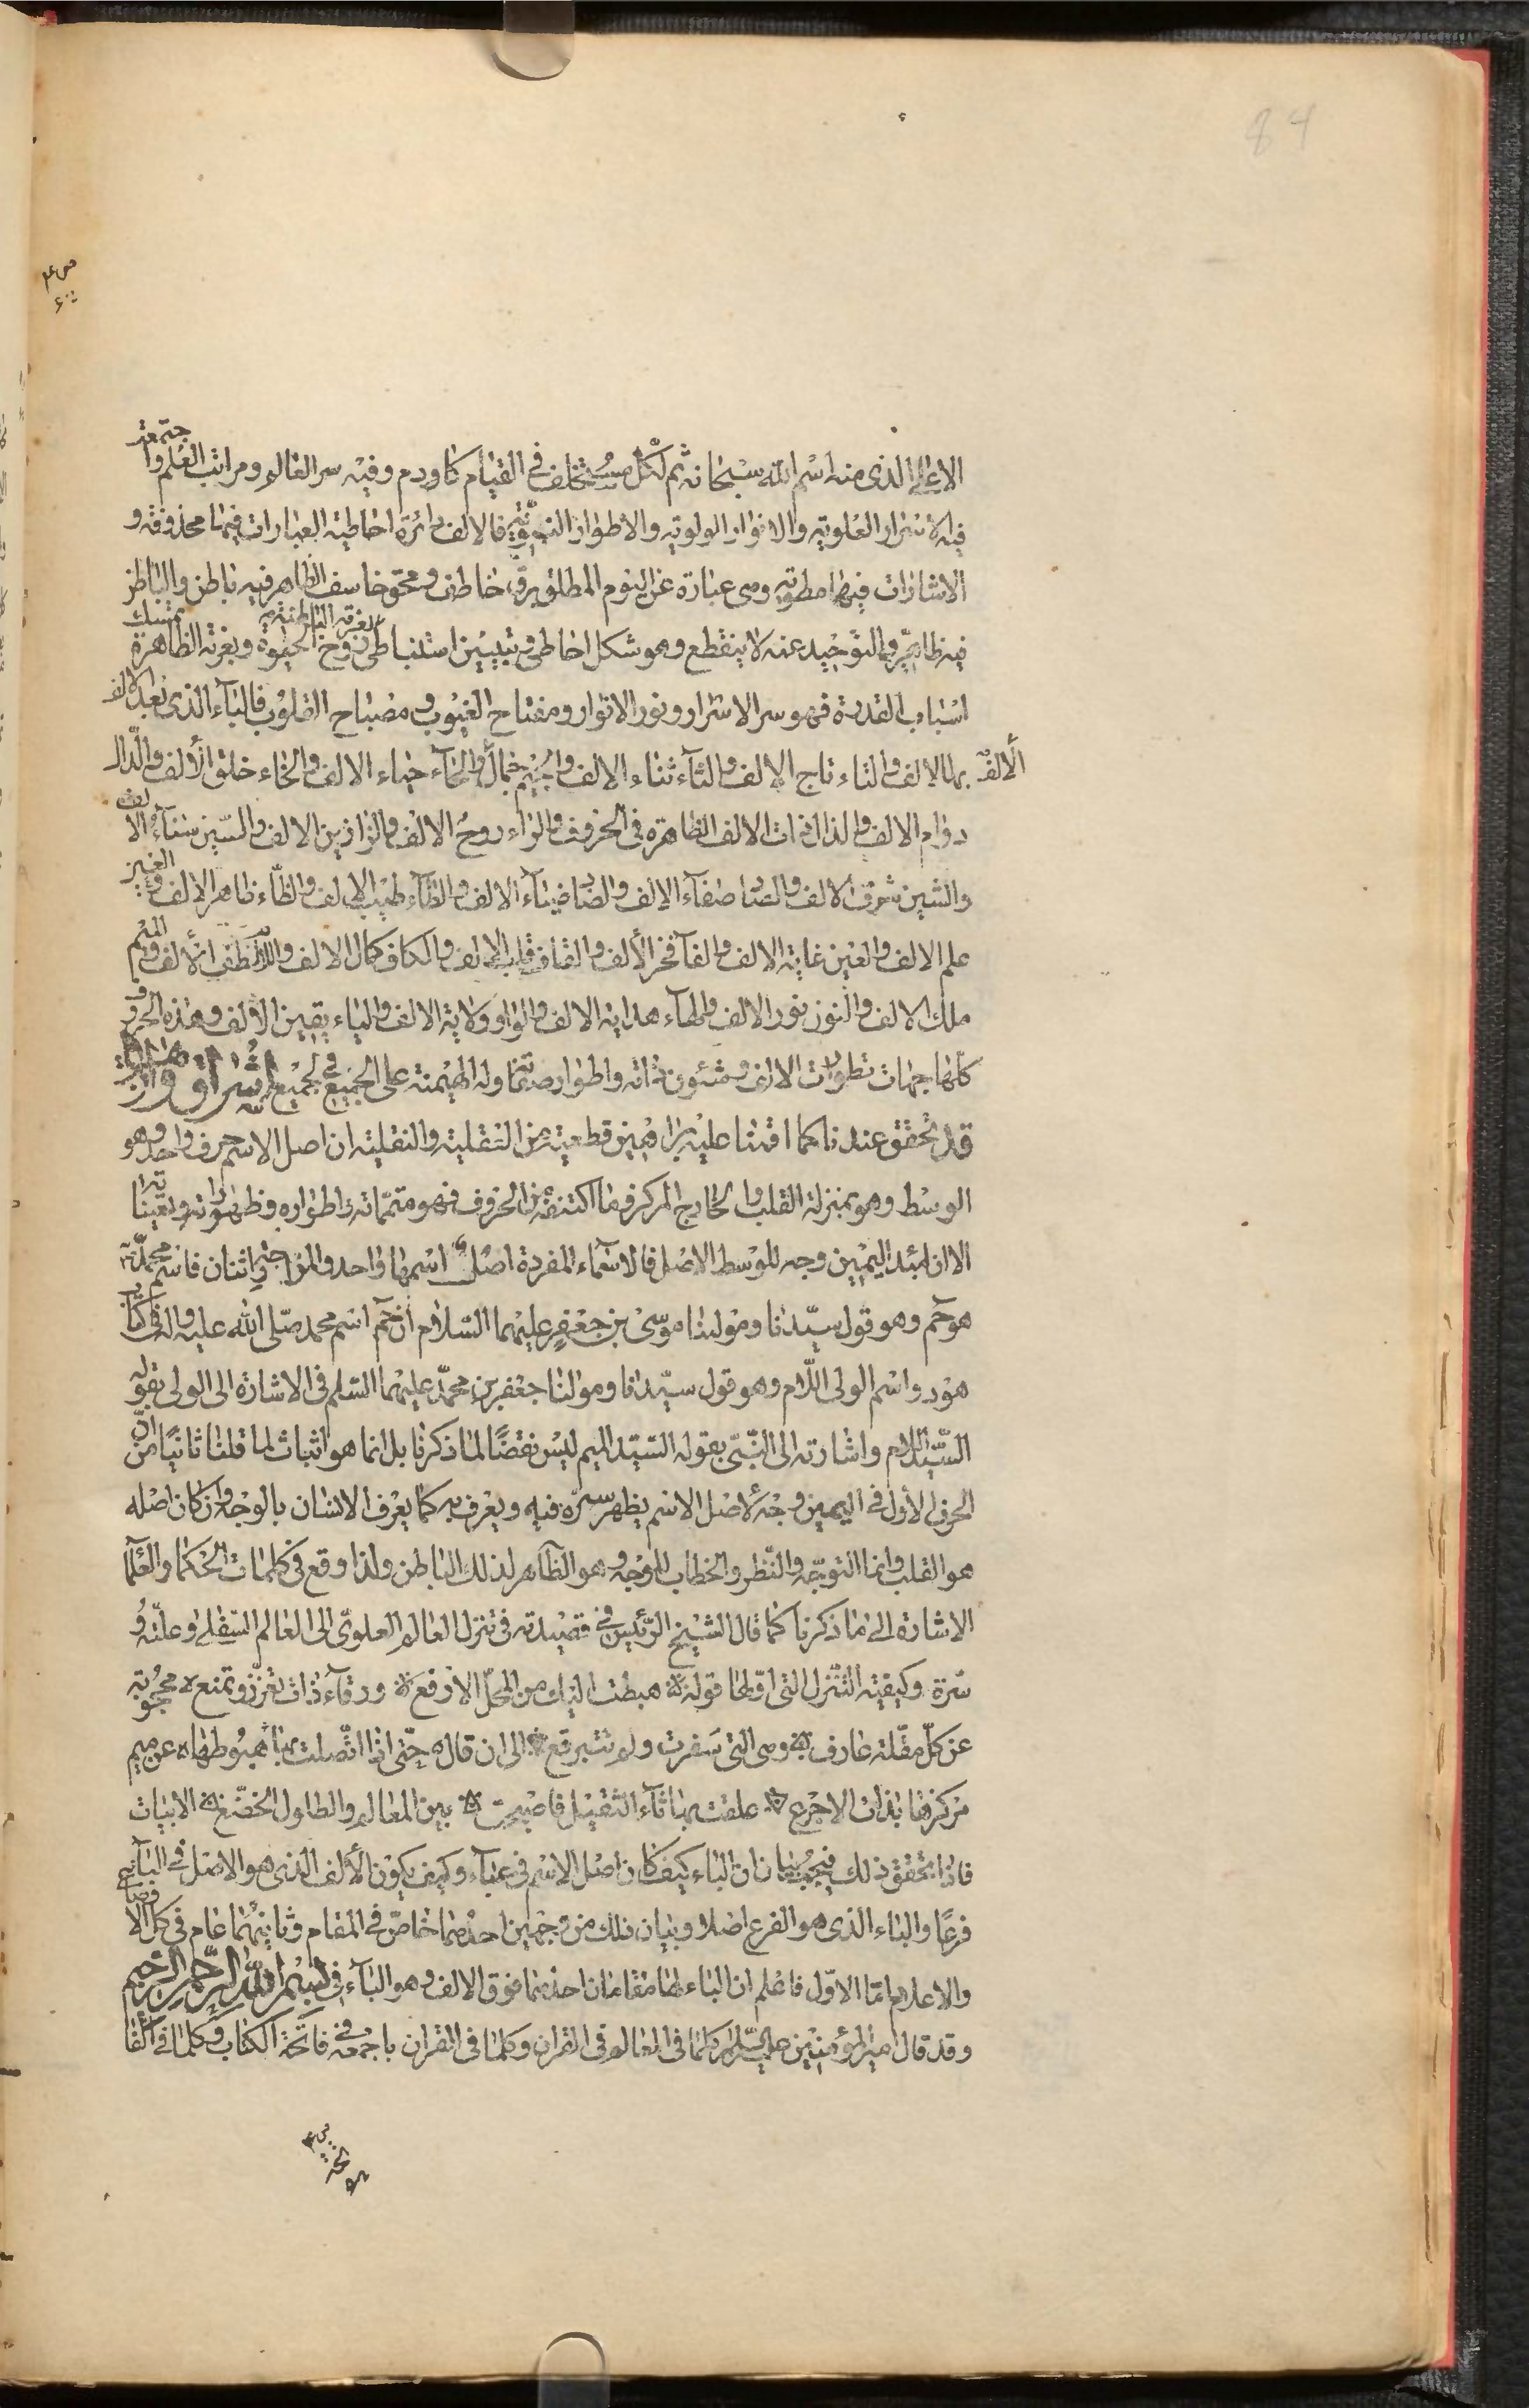 84
الاعلى الذى منه اسْم الله سبحانه ثم لكل مستخلف فى القيام كاودم وفيه سر العالم ومراتب العلم واجتمعت
فيه الاسرار العلوية والانوار الولوية والاطوار النبوية فالالف دائرة احاطية العبارات فيها محذوفة و
الاشارات فيها مطوية وهى عبارة عن اليوم المطلق برق خاطف ومحق خاسف الظاهر فيه باطن والباطن
فيه ظاهر والتوحيد عنه لا ينقطع وهو شكل احاطى وتبيين استنباطى بغرته الباطنية روح الحيوة وبغرته الظاهرة تمسك
اسباب القدرة فهو سر الاسرار ونور الانوار ومفتاح الغيوب ومصباح القلوب فالباء الذى بعد الالف
الالف بهاء الالف والتاء تاج الالف والثاء ثناء الالف والجيم جمال الالف والحاء حياء الالف والخاء خلق الالف والدال
دوام الالف والذال ذات الالف الظاهرة فى الحروف والراء روح الالف والزا زين الالف والسين سناء الالف
والشين شرق الالف والصاد صفاء الالف والضاد ضياء الالف والطاء طيب الالف والظاء ظاهر الالف والعين
علم الالف والغين غاية الالف والفاء فخر الالف والقاف قلب الالف والكاف كمال الالف واللام لطف الالف والميم
ملك الالف والنون نور الالف والهاء هداية الالف والواو ولاية الالف والياء يقين الالف وهذه الحروف
كلها جهات تطورات الالف وشئون ذاته واطوار صفاته وله الهيمنة على الجميع فى الجميع اشراق وابراز
قد تحقق عندنا كما اقمنا عليه براهين قطعية من العقلية والنقلية ان اصل الاسم حرف واحد وهو
الوسط وهو بمنزلة القلب والخارج المركز فما اكتنفه من الحروف فهو متمماته واطواره وظهوراته وتعيناته
الا ان لمبدء اليمين وجه للوسط الاصل فالاسماء المفردة اصل اسمها واحد والمزاوجتى اثنان فاسم محمد
هو حم وهو قول سيدنا ومولينا موسى بن جعفر عليهما السلام ان حم اسم محمد صلى الله عليه واله فى كتاب
هود واسم الولى اللام وهو قول سيدنا ومولنا جعفر بن محمد عليهما السلم فى الاشارة الى الولى بقوله
السيد اللام واشارته الى النبى بقوله السيد الميم ليس نقضا لما ذكرنا بل انما هو اثبات لما قلنا ثانيا من ان
الحرف الاول فى اليمين وجه لاصل الاسم يظهر سره فيه ويعرف به كما يعرف الانسان بالوجه وان كان اصله
هو القلب وانما التوجه والنظر والخطاب للوجه وهو الظاهر لذلك الباطن ولذا وقع فى كلمات الحكما والعلما
الاشارة الى ما ذكرنا كما قال الشيخ الرئيس فى قصيدته فى تنزل العالم العلوى الى العالم السفلى وعلته و
سره وكيفيته التنزل التى اولها قوله هبطت اليك من المحل الارفع ورقاء ذات تعزز وتمنع محجوبة
عن كل مقلة عارف وهى التى سفرت ولم تتبرقع الى ان قال حتى اذا اتصلت بهاء هبوطها عن ميم
مركزها بذات الاجرع علقت بها ثاء الثقيل فاصبحت بين المعالم والطلول الخضع الابيات
فاذا تحقق ذلك فيجب بيان ان الباء كيف كان اصل الاسم فى عباء وكيف يكون الالف الذى هو الاصل فى الباء
فرعا والباء الذى هو الفرع اصلا وبيان ذلك من وجهين احدهما خاص فى المقام وثانيهما عام فى كل الاوضاع
والاعلام اما الاول فاعلم ان الباء لها مقامان احدهما فوق الالف وهو الباء فى بسم الله الرحمن الرحيم
وقد قال امير المؤمنين عليه السلام كلما فى العالم فى القران وكلما فى القران باجمعه فى فاتحة الكتاب وكلما فى الفا